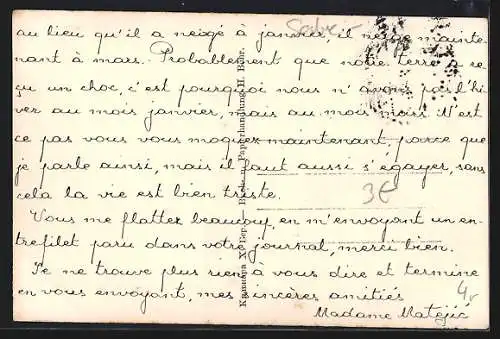 au lieu qu'il a neigé à janvier, il neige mainte-
nant à mars. Probablement que notre terre a re-
çu un choc, c'est pourquoi nous n'avons pas l'hi-
ver au mois janvier, mais au mois mars. N'est
ce pas vous vous moquez maintenant, parce que
je parle ainsi, mais il faut aussi s'égayer, sans
cela la vie est bien triste.
3€
Vous me flattez beaucoup, en m'envoyant un en-
trefilet paru dans votre journal, merci bien.
Je ne trouve plus rien à vous dire et termine
en vous envoyant, mes sincères amitiés
Madame Matejić